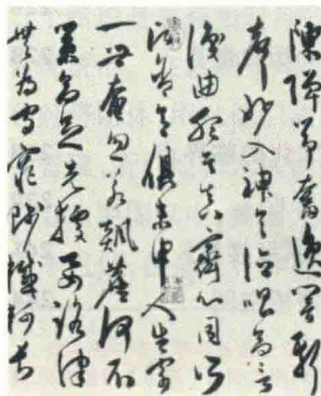 陳彈箏奮逸響新
聲妙入神令德唱高言
識曲聽其真齊心同所
願含意俱未申人生寄
一世奄忽若飆塵何不
策高足先據要路津
無為守窮賤轗軻長